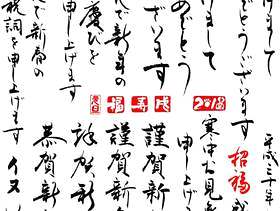 でとうございます
招福
平成三十年
けまして
めでとう
ざいます
で新年の
慶びを
申し上げます
で新春の
祝詞を申し上げます
福 寿 戌
2018
寒中お見
申し上
謹賀新
謹賀新
恭賀新